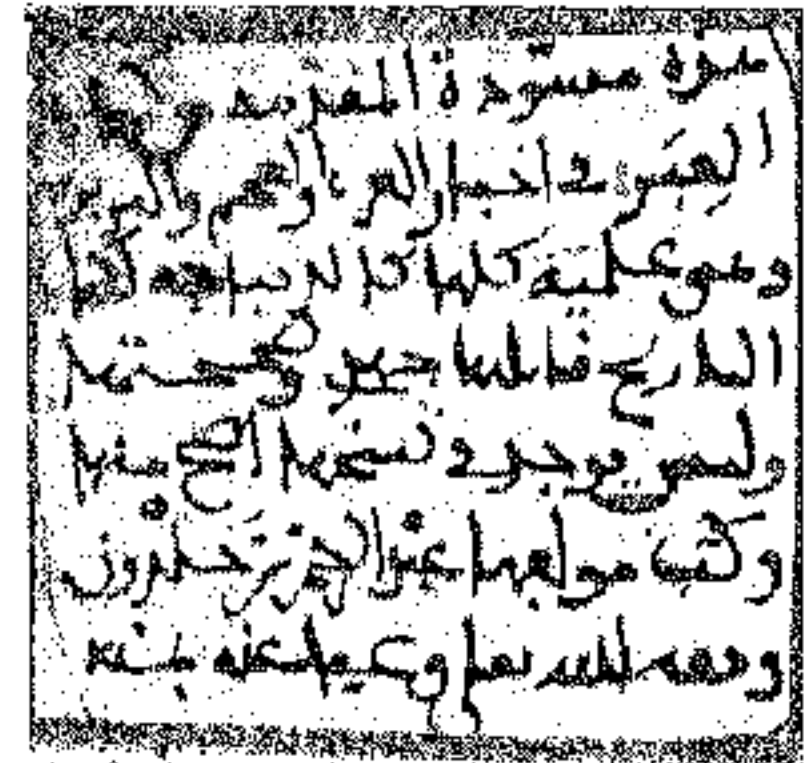 هذه مسودة المقدمة من كتاب
العبر في أخبار العرب والعجم والبربر
وهي علمية كلها كالديباجة لكتاب
التاريخ قابلتها جهدي وصححتها
وليس يوجد في نسخها أصح منها
وكتب مؤلفها عبد الرحمن بن خلدون
وفقه الله تعالى وعفا عنه بمنه